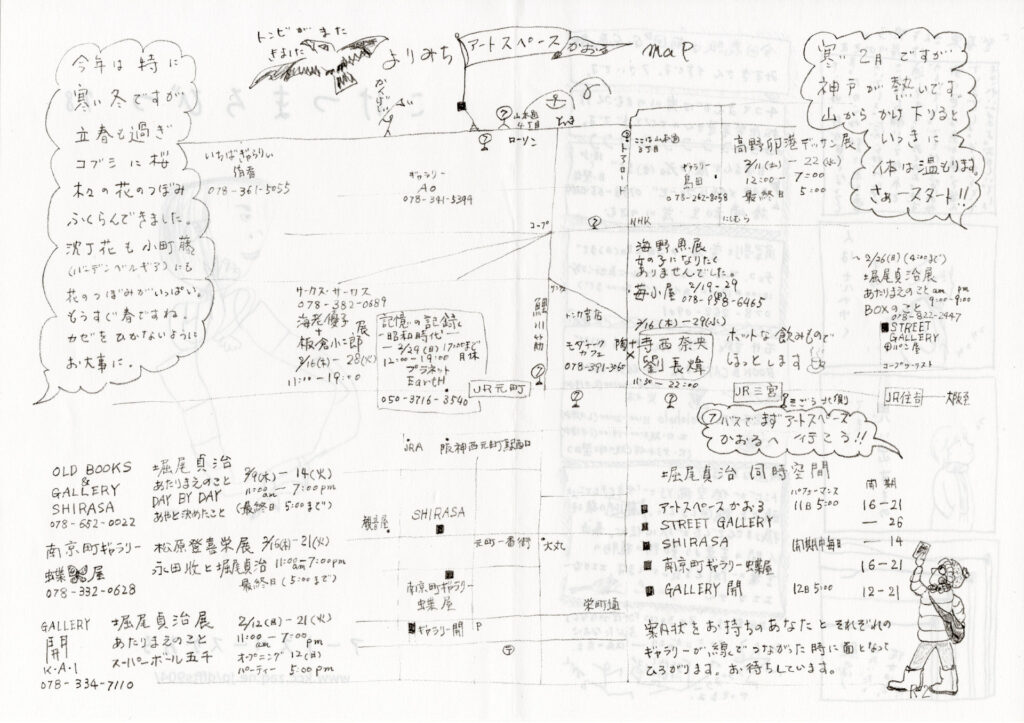 トンビがまた
きました
よりみち
アートスペース
かおる
map
今年は特に
寒い冬ですが
立春も過ぎ
コブシに桜
木々の花のつぼみ
ふくらんできました。
沈丁花も小町藤
(ハーデンベルギア)にも
花のつぼみがいっぱい。
もうすぐ春ですね。
カゼをひかないように
お大事に。
寒い2月ですが
神戸が熱いです。
山からかけ下りると
いっきに
体は温もります。
さぁースタート!!
山本通
4丁目
ローソン
いちばぎゃらりぃ
侑香
078-361-5055
ギャラリー
AO
078-341-5399
トアロード
ここは山本通
3丁目
ギャラリー
島田
078-262-8058
高野卯港デッサン展
2/11(土)-22(水)
12:00-7:00
最終日 5:00
コープ
NHK
にしむら
サーカス・サーカス
078-382-0689
海老優子
板倉小二郎 展
2/16(木)-28(火)
11:00-19:00
記憶の記録
-昭和時代-
-2/29(日)17:00まで
12:00-19:00 月休
プラネット
EartH
050-3716-3540
鯉川筋
JR元町
海野魚展
女の子になりたく
ありませんでした。
2/19-29
苺小屋
トンカ書店
モダナーク
カフェ
078-391-3060
2/16(木)-29(水)
陶 寺西奈央
劉長煒
11:30-22:00
ホットな飲みもので
ほっとします
~2/26(日)(4:00まで)
堀尾貞治展
あたりまえのこと
am pm
9:00-9:00
BOXのこと
078-822-2447
STREET
GALLERY
パン屋
コープツーリスト
JR三宮
JR住吉
大阪至
⑦バスでまずアートスペース
かおるへ行こう!!
JRA
阪神西元町駅西口
観音屋
SHIRASA
元町一番街
大丸
南京町ギャラリー
蝶屋
栄町通
ギャラリー開
P
OLD BOOKS
&
GALLERY
SHIRASA
078-652-0022
堀尾貞治
あたりまえのこと
DAY BY DAY
あやと決めたこと
2/9(木)-14(火)
11:00am-7:00pm
(最終日 5:00まで)
南京町ギャラリー
蝶屋
078-332-0628
松原登喜栄展 2/16(木)-21(火)
永田收と堀尾貞治 11:00am 7:00pm
最終日(5:00まで)
GALLERY
開
K-A-I
078-334-7110
堀尾貞治展
あたりまえのこと
スーパーボール五千
2/12(日)-21(火)
11:00am-7:00pm
オープニング 12(日)
パーティー 5:00pm
堀尾貞治 同時空間
パフォーマンス
会期
アートスペースかおる 11日 5:00 16-21
STREET GALLERY -26
SHIRASA 会期中毎日 -14
南京町ギャラリー蝶屋 16-21
GALLERY 開 12日 5:00 12-21
案内状をお持ちのあなたとそれぞれの
ギャラリーが線でつながった時に面となって
ひろがります。お待ちしています。